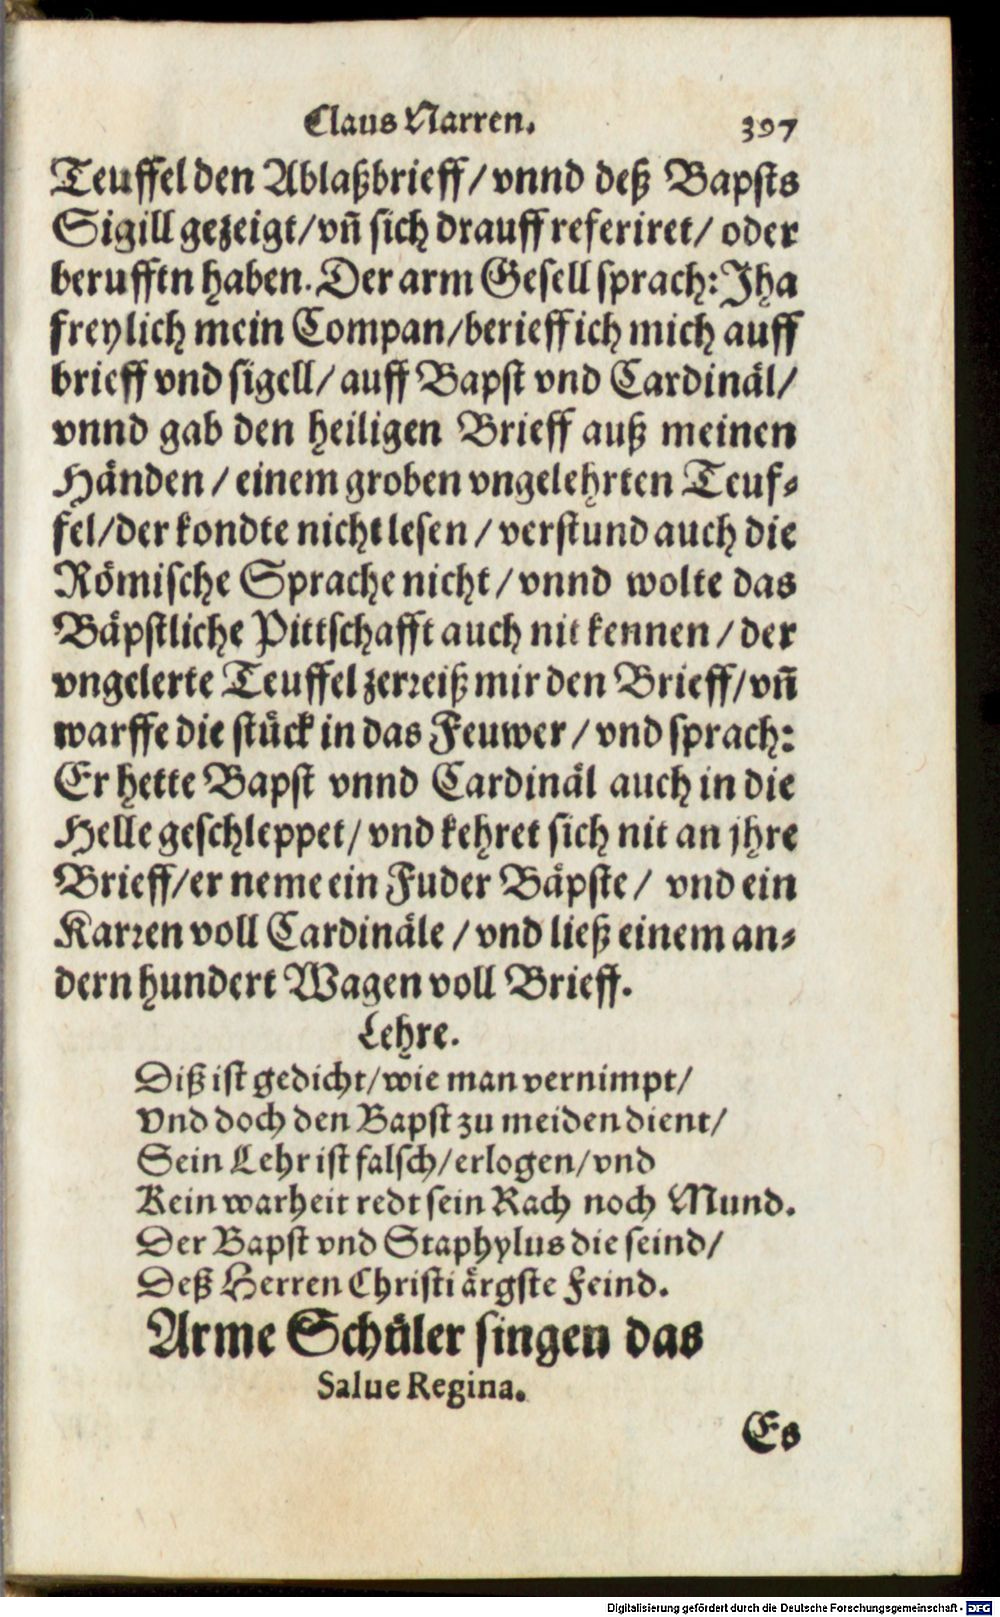 Claus Narren. 397
Teuffel den Ablaßbrieff / vnnd deß Bapsts
Sigill gezeigt / vñ sich drauff referiret / oder
berufftn haben. Der arm Gesell sprach: Jha
freylich mein Compan / berieff ich mich auff
brieff vnd sigell / auff Bapst vnd Cardinäl /
vnnd gab den heiligen Brieff auß meinen
Händen / einem groben vngelehrten Teuf-
fel / der kondte nicht lesen / verstund auch die
Römische Sprache nicht / vnnd wolte das
Bäpstliche Pittschafft auch nit kennen / der
vngelerte Teuffel zerreiß mir den Brieff / vñ
warffe die stück in das Feuwer / vnd sprach:
Er hette Bapst vnnd Cardinäl auch in die
Helle geschleppet / vnd kehret sich nit an jhre
Brieff / er neme ein Fuder Bäpste / vnd ein
Karren voll Cardinäle / vnd ließ einem an-
dern hundert Wagen voll Brieff.
Lehre.
Diß ist gedicht / wie man vernimpt /
Vnd doch den Bapst zu meiden dient /
Sein Lehr ist falsch / erlogen / vnd
Kein warheit redt sein Rach noch Mund.
Der Bapst vnd Staphylus die seind /
Deß Herren Christi ärgste Feind.
Arme Schüler singen das
Salue Regina.
Es
Digitalisierung gefördert durch die Deutsche Forschungsgemeinschaft - DFG